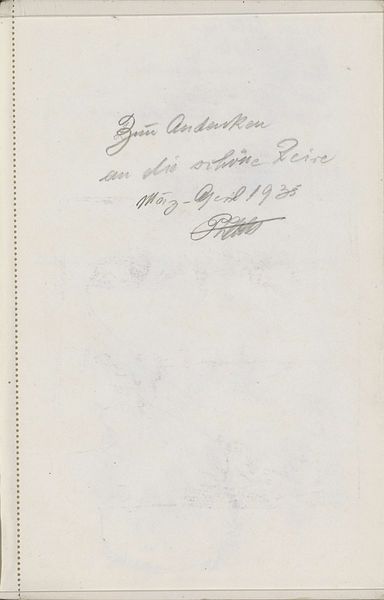 Zum Andenken
an die schöne Reise
März-April 1935